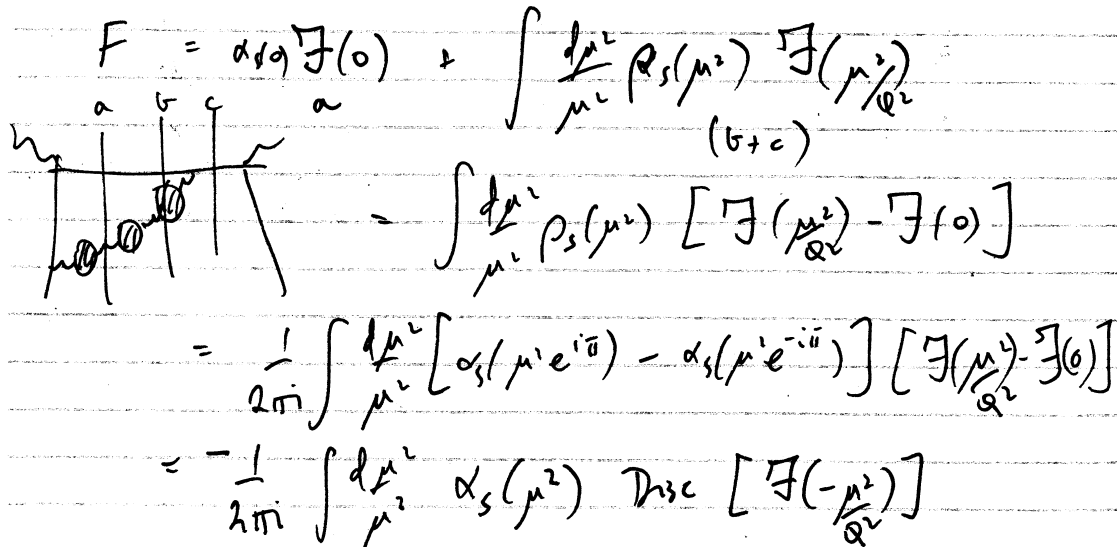 F = αs(0) ℱ(0) + ∫ dμ²/μ² ρs(μ²) ℱ(μ²/Q²)
a b c a (b+c)
= ∫ dμ²/μ² ρs(μ²) [ℱ(μ²/Q²) - ℱ(0)]
= 1/2πi ∫ dμ²/μ² [αs(μ²e^{iπ}) - αs(μ²e^{-iπ})] [ℱ(μ²/Q²) - ℱ(0)]
= -1/2πi ∫ dμ²/μ² αs(μ²) Disc [ℱ(-μ²/Q²)]